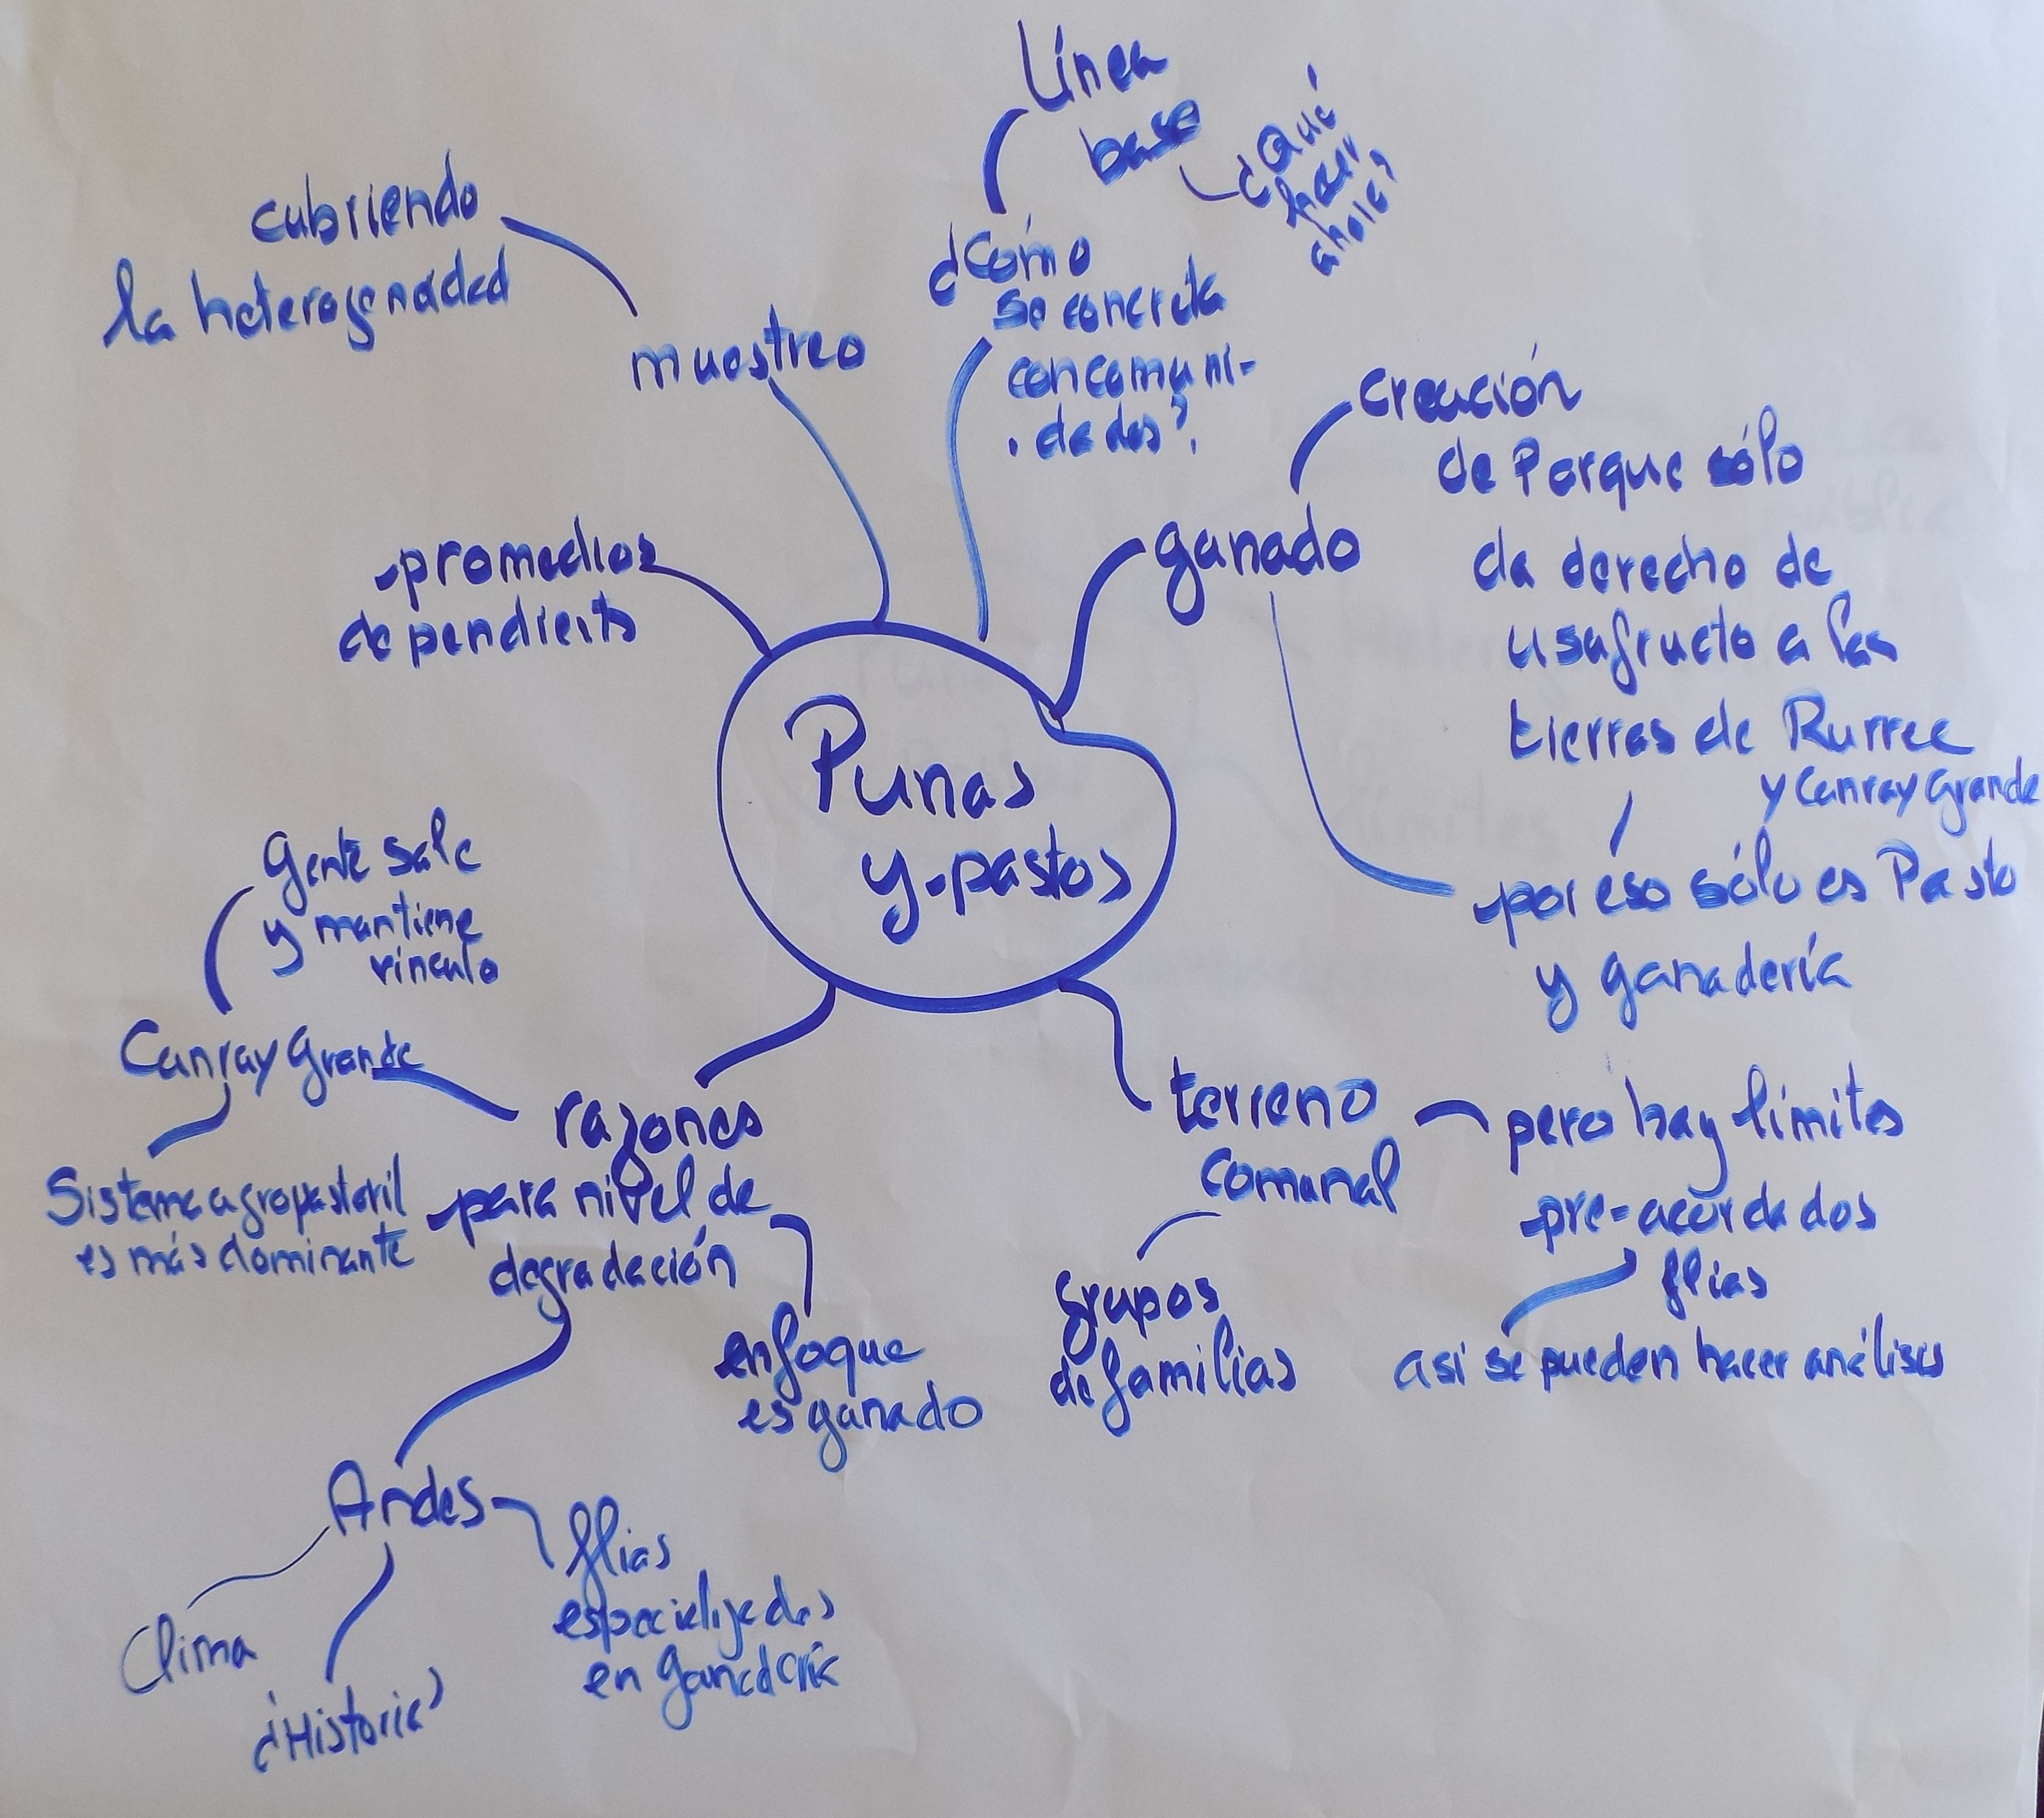 Punas
y pastos
Línea
base
¿Qué
hay
ahora?
¿Cómo
se concreta
con comuni-
dades?
muestreo
cubriendo
la heterogenadad
promedios
dependients
ganado
creación
de Parque sólo
da derecho de
usafructo a las
tierras de Rurrec
y Canray Grande
por eso sólo es Pasto
y ganadería
terreno
comunal
pero hay límites
pre-acordados
flias
así se pueden hacer análisis
grupos
de familias
razones
para nivel de
degradación
enfoque
es ganado
Canray Grande
Gente sale
y mantiene
vínculo
Sistema agropastoril
es más dominante
Andes
Clima
¿Historia?
flias
especializadas
en ganadería